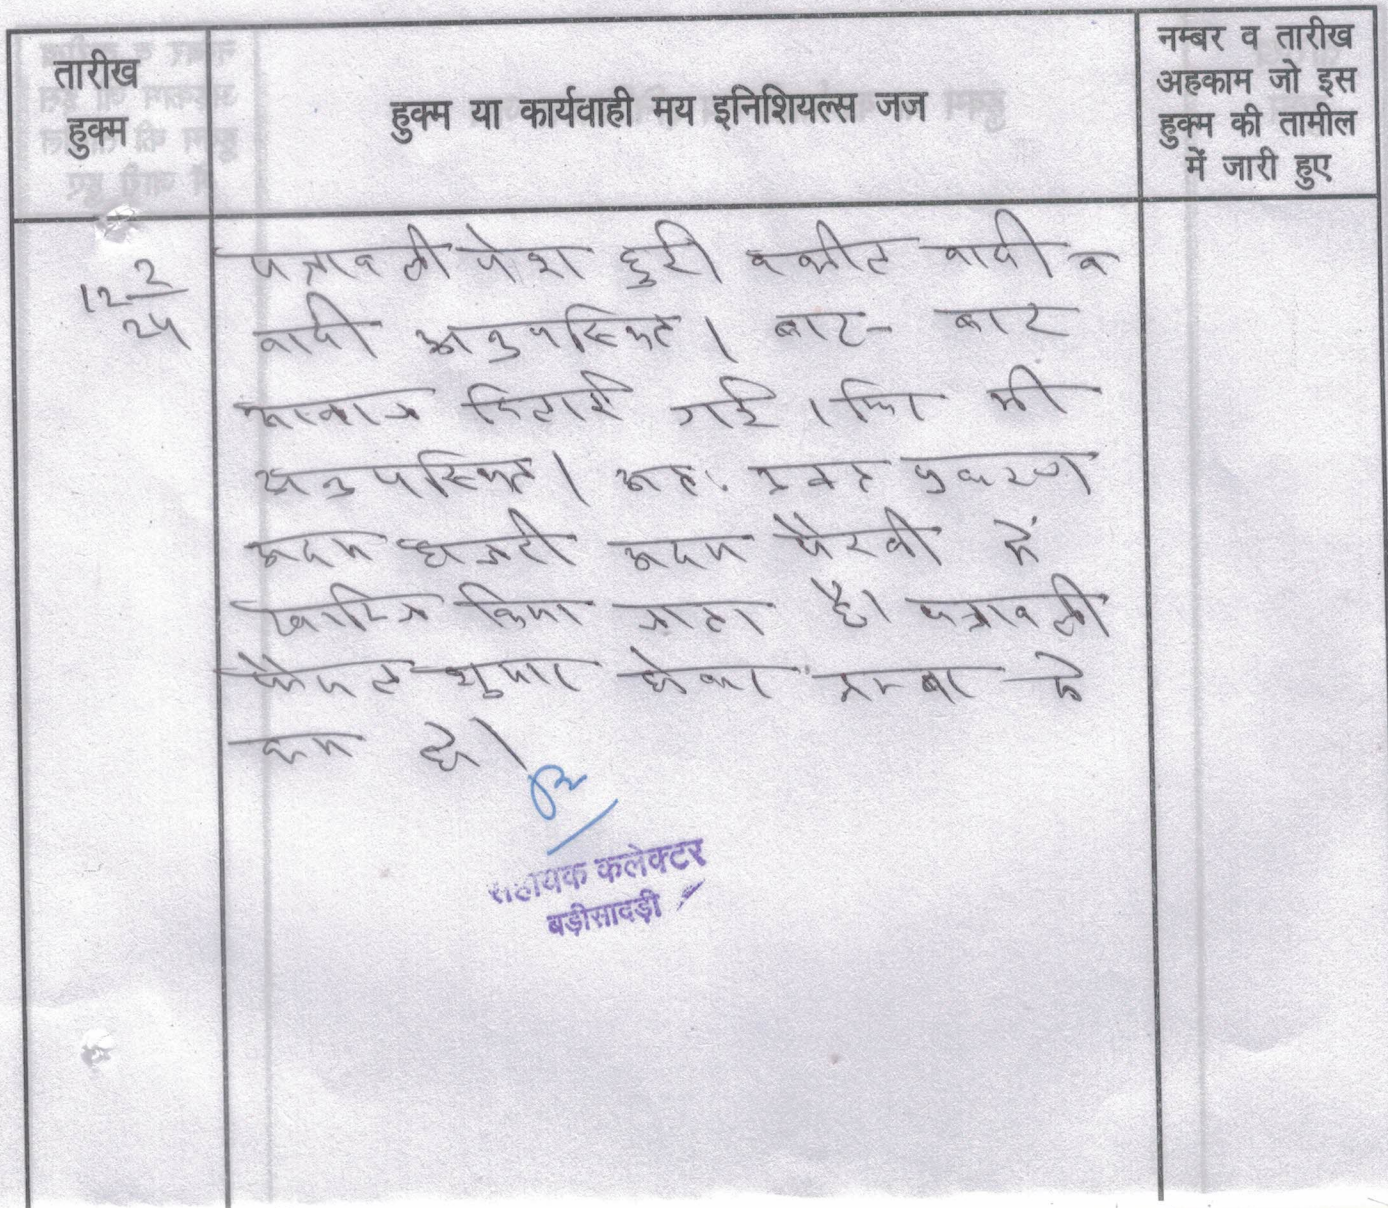 तारीख
हुक्म
हुक्म या कार्यवाही मय इनिशियल्स जज
नम्बर व तारीख
अहकाम जो इस
हुक्म की तामील
में जारी हुए
12 2/24
पत्रावली पेश हुई वकील वादी व
वादी अनुपस्थित। बार-बार
आवाज दिलाई गई। फिर भी
अनुपस्थित। अतः प्रकरण
अदम हाजरी अदम पैरवी में
खारिज किया जाता है। पत्रावली
फैसल शुमार होकर नम्बर से
कम हो।
सहायक कलेक्टर
बड़ीसादड़ी